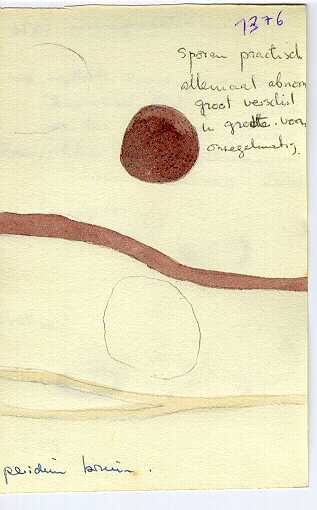 1376
sporen practisch
allemaal abnorm
groot verschil
in grootte. vorm
onregelmatig.
peridium bruin.